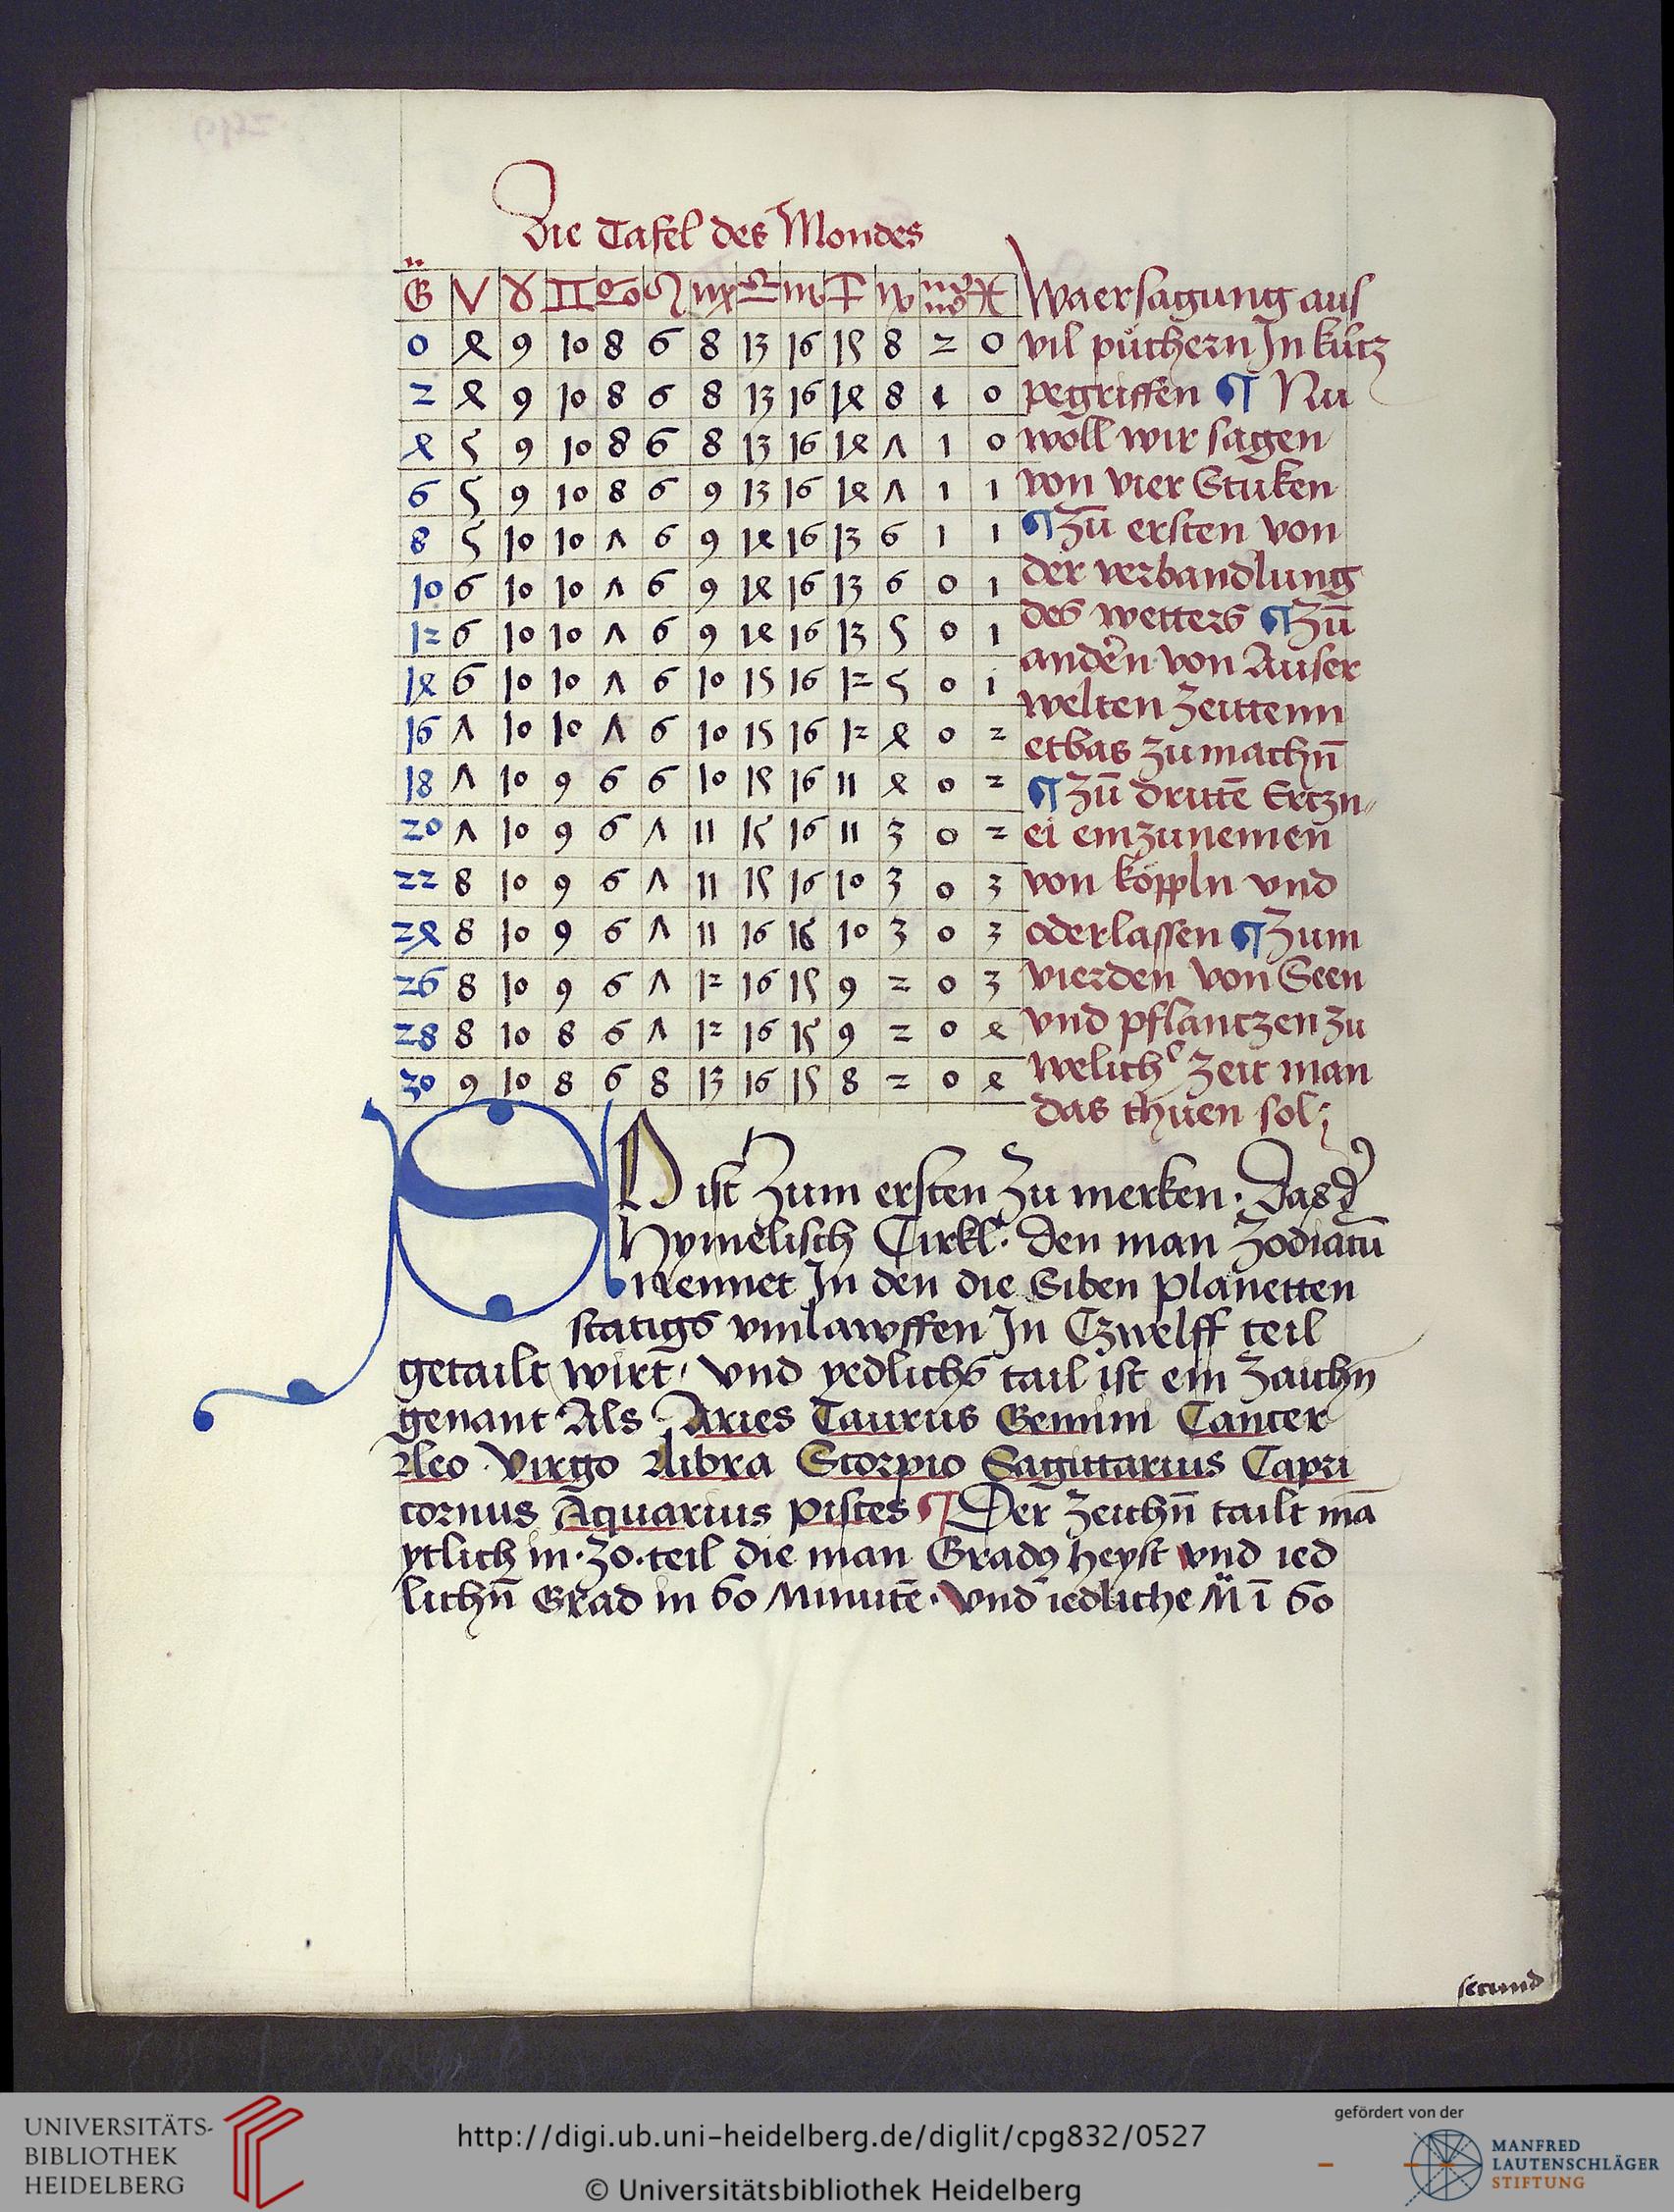 Die Tafel des Mondes
G̈ ♈ ♉ ♊ ♋ ♌ ♍ ♎ ♏ ♐ ♑ ♒ ♓
0 4 9 10 8 6 8 13 16 15 8 2 0
2 4 9 10 8 6 8 13 16 14 8 1 0
4 5 9 10 8 6 8 13 16 14 7 1 0
6 5 9 10 8 6 9 13 16 14 7 1 1
8 5 10 10 7 6 9 14 16 13 6 1 1
10 6 10 10 7 6 9 14 16 13 6 0 1
12 6 10 10 7 6 9 14 16 13 5 0 1
14 6 10 10 7 6 10 15 16 12 5 0 1
16 7 10 10 7 6 10 15 16 12 4 0 2
18 7 10 9 6 6 10 15 16 11 4 0 2
20 7 10 9 6 7 11 15 16 11 3 0 2
22 8 10 9 6 7 11 15 16 10 3 0 3
24 8 10 9 6 7 11 16 16 10 3 0 3
26 8 10 9 6 7 12 16 15 9 2 0 3
28 8 10 8 6 7 12 16 15 9 2 0 4
30 9 10 8 6 8 13 16 15 8 2 0 4
Waersagung aus
vil püchern In kurtz
pegriffen ¶ Nu
woll wir sagen
von vier Stuken
¶ Zū ersten von
der verbandlung
des wetters ¶ Zū
andern von Auser
welten Zeittenn
etbas zu machn̄
¶ Zū drittē Ertzn„
ei einzunemen
von köppln vnd
oderlassen ¶ Zum
vierden von Seen
vnd pflantzen zu
welicher Zeit man
das thuen sol;
SO ist Zum ersten Zu merken · Das der
Hymelisch Cirkl · Den man Zodiacū
Nennet In den die Siben planetten
statigs vmlawffen In Czwelff teil
getailt wirt / vnd yedlichs tail ist ein Zaichn
genant Als Aries Taurus Gemini Cancer
Leo Virgo Libra Scorpio Sagittarius Capri
cornus Aquarius pisces ¶ Der Zeichn̄ tailt mā
ytlich in · 30 · teil die man Gradꝰ heyst vnd ied
lichn̄ Grad in 60 Minutē · Vnd iedliche M̈ ī 60
secund
UNIVERSITÄTS-
BIBLIOTHEK
HEIDELBERG
http://digi.ub.uni-heidelberg.de/diglit/cpg832/0527
© Universitätsbibliothek Heidelberg
gefördert von der
MANFRED
LAUTENSCHLÄGER
STIFTUNG